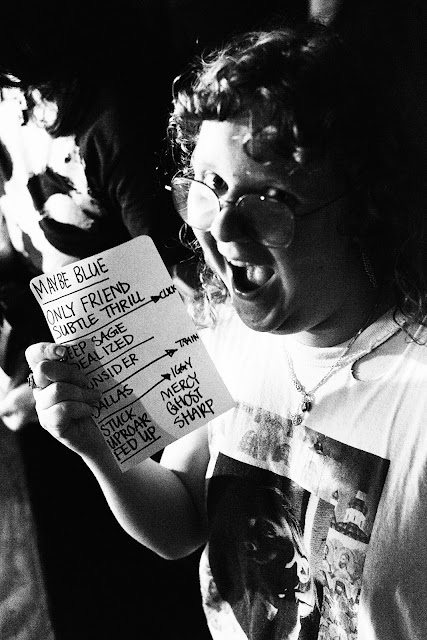 MAYBE BLUE
ONLY FRIEND
SUBTLE THRILL → CLICK
EEP SAGE
DEALIZED
NSIDER →
DALLAS → IGGY
STUCK MERCY
UPROAR GHOST
FED UP SHARP